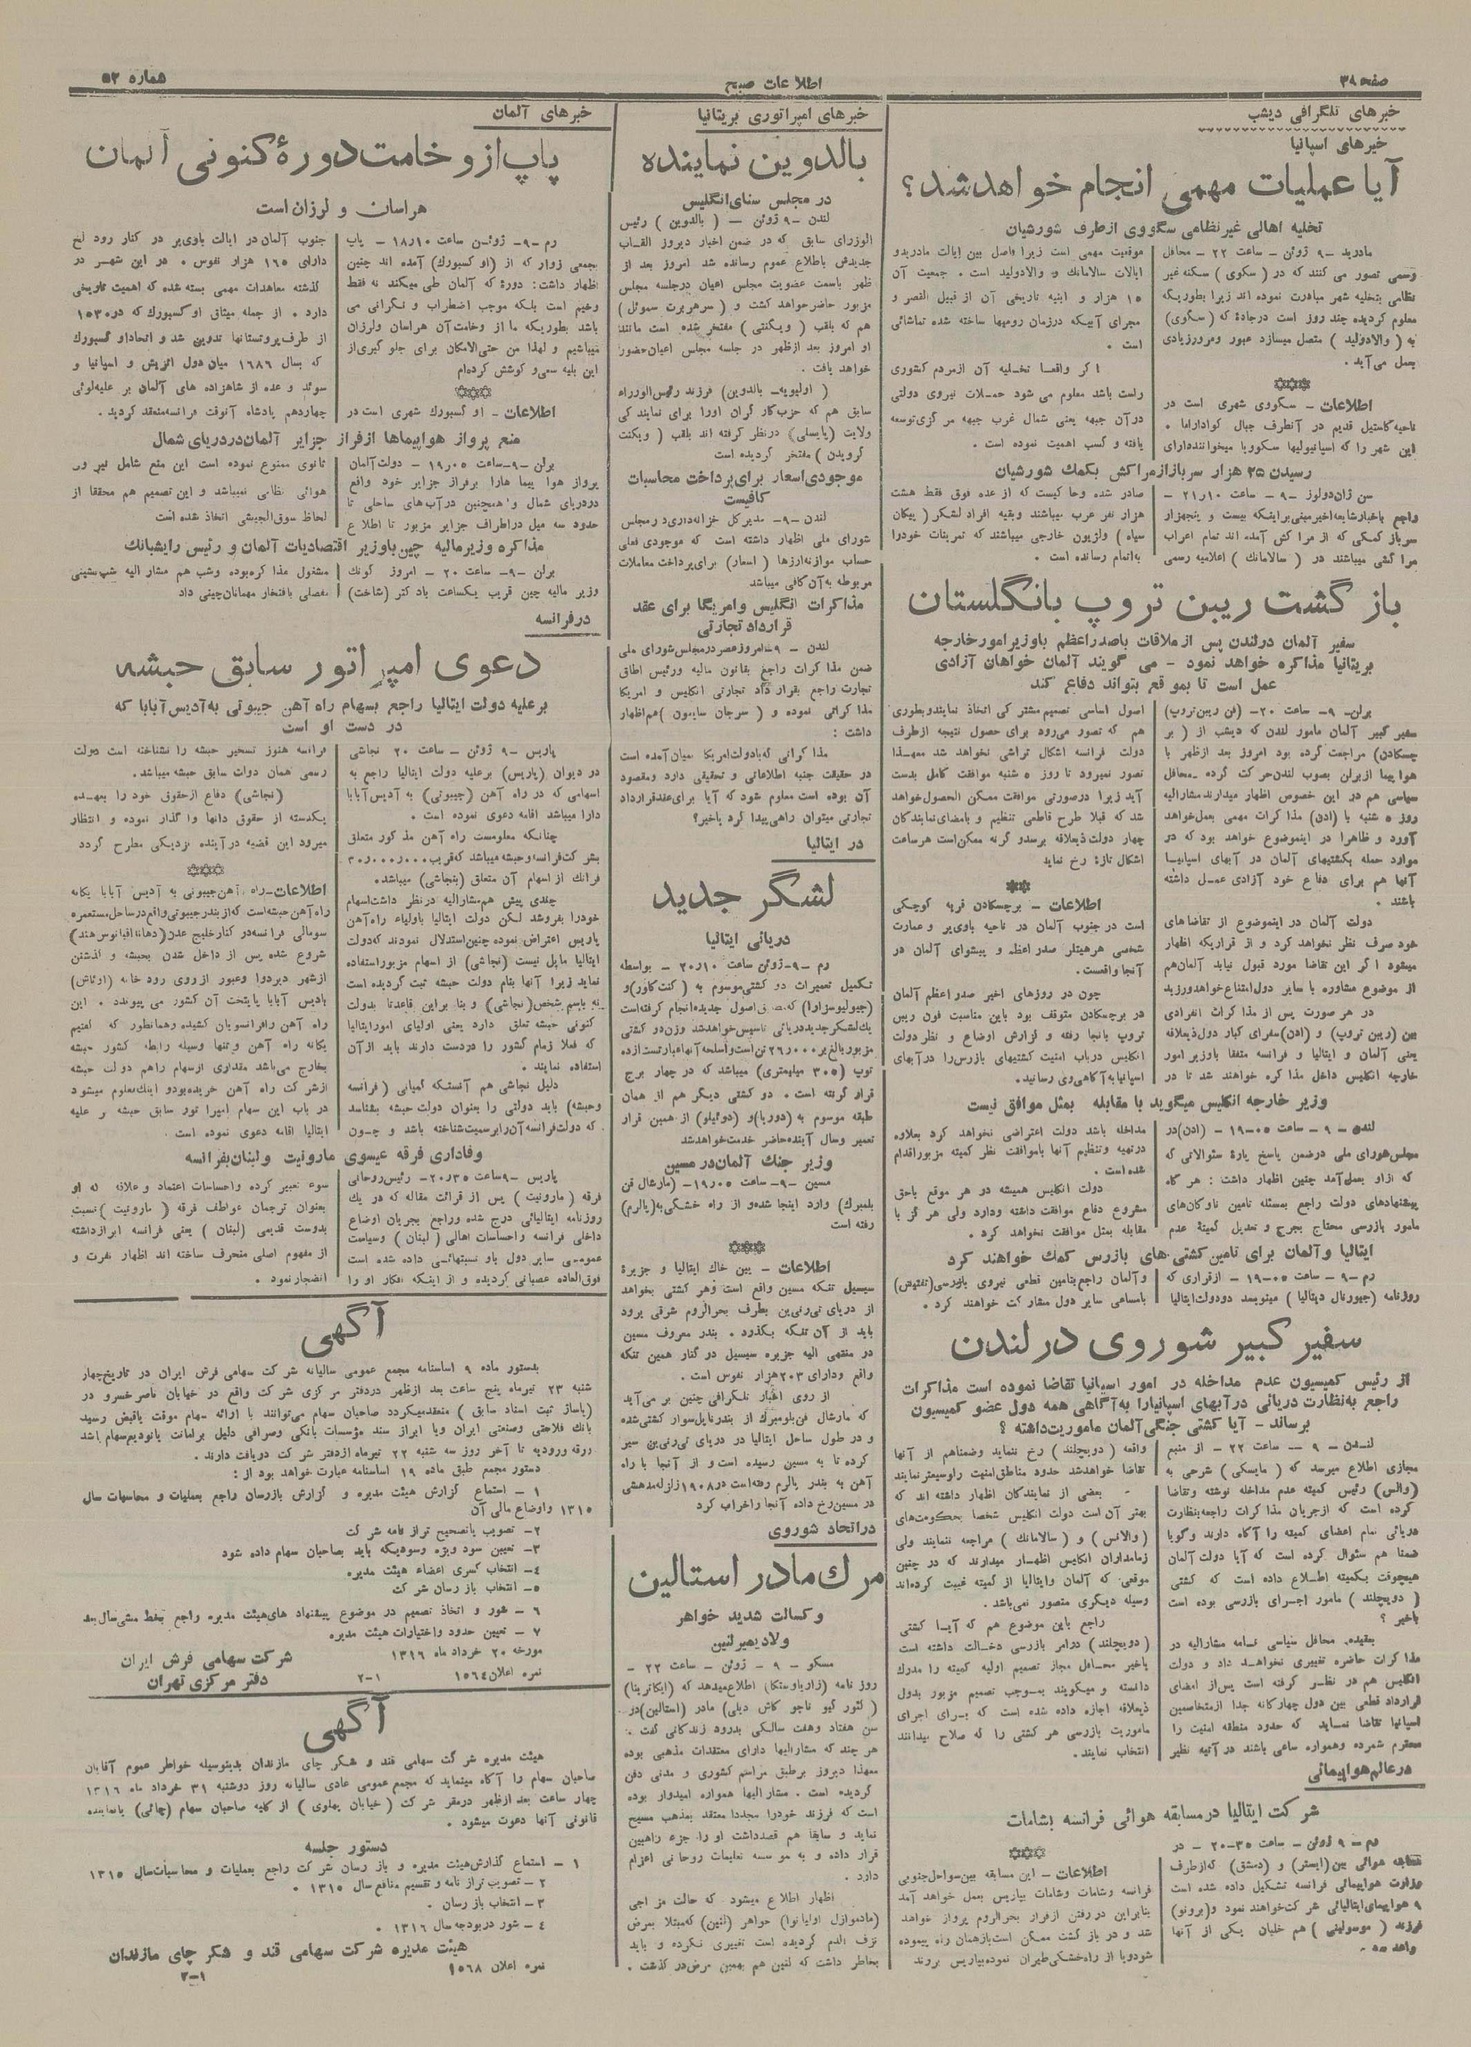 صفحه ۳۸
اطلاعات صبح
شماره ۵۲
خبرهای تلگرافی دیشب
خبرهای اسپانیا
آیا عملیات مهمی انجام خواهد شد؟
تخلیه اهالی غیر نظامی سگووی از طرف شورشیان
مادرید -۹ ژوئن - ساعت ۲۲ - محافل
رسمی تصور می کنند که در (سکوی) سکنه غیر
نظامی بتخلیه شهر مبادرت نموده اند زیرا بطوریکه
معلوم گردیده چند روز است در جادهٔ که (سگوی)
به (والادولید) متصل میسازد عبور و مرور زیادی
بعمل می‌آید .
اطلاعات - سکووی شهری است در
ناحیه کاستیل قدیم در آنطرف جبال کواداراما .
این شهر را که اسپانیولیها سکوویا میخوانند دارای
موقعیت مهمی است زیرا فاصل بین ایالت مادرید و
ایالات سالامانك و والادولید است . جمعیت آن
۱۵ هزار و ابنیه تاریخی آن از قبیل القصر و
مجرای آبیکه در زمان رومیها ساخته شده تماشائی
است .
اگر واقعا تخلیه آن از مردم کشوری
راست باشد معلوم می شود حملات نیروی دولتی
در آن جبهه یعنی شمال غرب جبهه مرکزی توسعه
یافته و کسب اهمیت نموده است .
رسیدن ۲۵ هزار سرباز از مراکش بکمك شورشیان
سن ژان دولوز -۹- ساعت ۲۱٫۱۰ -
راجع باخبار شایعه اخیر مبنی بر اینکه بیست و پنجهزار
سرباز کمکی که از مراکش آمده اند تمام اعراب
مراکشی میباشند در (سالامانك) اعلامیه رسمی
صادر شده و حاکیست که از عده فوق فقط هشت
هزار نفر عرب میباشند و بقیه افراد لشکر (پیکان
سیاه) و لژیون خارجی میباشند که تمرینات خود را
به اتمام رسانده است .
باز گشت ریبن تروپ بانگلستان
سفیر آلمان در لندن پس از ملاقات با صدراعظم با وزیر امور خارجه
بریتانیا مذاکره خواهد نمود - می گویند آلمان خواهان آزادی
عمل است تا بموقع بتواند دفاع کند
برلن- ۹- ساعت ۲۰- (فن ریبن تروپ)
سفیر کبیر آلمان مامور لندن که دیشب از (بر
چسکادن) مراجعت کرده بود امروز بعد از ظهر با
هواپیما از برلن بصوب لندن حرکت کرده . محافل
سیاسی هم در این خصوص اظهار میدارند مشارالیه
روز ۵ شنبه با (ادن) مذاکرات مهمی بعمل خواهد
آورد و ظاهرا در اینموضوع خواهد بود که در
موارد حمله بکشتیهای آلمان در آبهای اسپانیا
آنها هم برای دفاع خود آزادی عمل داشته
باشند .
دولت آلمان در اینموضوع از تقاضاهای
خود صرف نظر نخواهد کرد و از قراریکه اظهار
میشود اگر این تقاضا مورد قبول نیابد آلمان هم
از موضوع مشاوره با سایر دول امتناع خواهد ورزید
در هر صورت پس از مذاکرات انفرادی
بین (ریبن تروپ) و (ادن) سفرای کبار دول ذیعلاقه
یعنی آلمان و ایتالیا و فرانسه متفقا با وزیر امور
خارجه انگلیس داخل مذاکره خواهند شد تا در
اصول اساسی تصمیم مشترکی اتخاذ نمایند و بطوری
هم که تصور می‌رود برای حصول نتیجه از طرف
دولت فرانسه اشکال تراشی نخواهد شد معهذا
تصور نمیرود تا روز ۵ شنبه موافقت کامل بدست
آید زیرا در صورتی موافقت ممکن الحصول خواهد
شد که قبلا طرح قاطعی تنظیم و بامضای نمایندگان
چهار دولت ذیعلاقه برسد و گرنه ممکن است هر ساعت
اشکال تازهٔ رخ نماید
اطلاعات - برچسکادن قریه کوچکی
است در جنوب آلمان در ناحیه باوی‌یر و عمارت
شخصی هر هیتلر صدر اعظم و پیشوای آلمان در
آنجا واقعست .
چون در روزهای اخیر صدر اعظم آلمان
در برچسکادن متوقف بود باین مناسبت فون ریبن
تروپ بانجا رفته و گزارش اوضاع و نظر دولت
انگلیس در باب امنیت کشتیهای بازرس را در آبهای
اسپانیا به آگاهی وی رسانید .
وزیر خارجه انگلیس میگوید با مقابله بمثل موافق نیست
لندن - ۹ - ساعت ۱۹٫۰۵ - (ادن) در
مجلس شورای ملی در ضمن پاسخ بپارهٔ سئوالاتی که
از او بعمل آمد چنین اظهار داشت : هر گاه
پیشنهادهای دولت راجع بمسئله تامین ناوگان‌های
مامور بازرسی محتاج بجرح و تعدیل کمیته عدم
مداخله باشد دولت اعتراضی نخواهد کرد بعلاوه
در تهیه و تنظیم آنها با موافقت نظر کمیته مزبور اقدام
شده است .
دولت انگلیس همیشه در هر موقع باحق
مشروع دفاع موافقت داشته و دارد ولی هرگز با
مقابله بمثل موافقت نخواهد کرد .
ایتالیا و آلمان برای تامین کشتی‌های بازرس کمك خواهند کرد
رم -۹ - ساعت ۱۹٫۰۵ - از قراری که
روزنامه (جیورنال دیتالیا) مینویسد دو دولت ایتالیا
و آلمان راجع بتامین قطعی نیروی بازرسی (تفتیش)
با مساعی سایر دول مشارکت خواهند کرد .
سفیر کبیر شوروی در لندن
از رئیس کمیسیون عدم مداخله در امور اسپانیا تقاضا نموده است مذاکرات
راجع به نظارت دریائی در آبهای اسپانیا را به آگاهی همه دول عضو کمیسیون
برساند - آیا کشتی جنگی آلمان ماموریت داشته ؟
لندن - ۹ - ساعت ۲۲ - از منبع
مجازی اطلاع میرسد که (مایسکی) شرحی به
(والس) رئیس کمیته عدم مداخله نوشته و تقاضا
کرده است که از جریان مذاکرات راجعه بنظارت
دریائی تمام اعضای کمیته را آگاه دارند و گویا
ضمنا هم سئوال کرده است که آیا دولت آلمان
هیچوقت بکمیته اطلاع داده است که کشتی
(دویچلند) مامور اجرای بازرسی بوده است
یاخیر ؟
بعقیده محافل سیاسی نامه مشارالیه در
مذاکرات حاضره تغییری نخواهد داد و دولت
انگلیس هم در نظر گرفته است پس از امضای
قرارداد قطعی بین دول چهارگانه جدا از متخاصمین
اسپانیا تقاضا نماید که حدود منطقه امنیت را
محترم شمرده و همواره ساعی باشند در آتیه نظیر
واقعه (دویچلند) رخ ننماید و ضمنا هم از آنها
تقاضا خواهد شد حدود مناطق امنیت را وسیعتر نمایند
بعضی از نمایندگان اظهار داشته اند که
بهتر آن است دولت انگلیس شخصا بحکومت‌های
(والانس) و (سالامانك) مراجعه ننمایند ولی
زمامداران انگلیس اظهار میدارند که در چنین
موقعی که آلمان و ایتالیا از کمیته غیبت کرده‌اند
وسیله دیگری متصور نمی باشد .
راجع باین موضوع هم که آیا کشتی
(دویچلند) در امر بازرسی دخالت داشته است
یاخیر محافل مجاز تصمیم اولیه کمیته را مدرك
دانسته و میگویند بموجب تصمیم مزبور بدول
ذیعلاقه اجازه داده شده است که برای اجرای
ماموریت بازرسی هر کشتی را که صلاح میدانند
انتخاب نمایند .
در عالم هواپیمائی
شرکت ایتالیا در مسابقه هوائی فرانسه بشامات
رم - ۹ ژوئن - ساعت ۲۰٫۳۵ - در
مسابقه هوائی بین (ایستر) و (دمشق) که از طرف
وزارت هواپیمائی فرانسه تشکیل داده شده است
۹ هواپیمای ایتالیائی شرکت خواهند نمود و (برونو)
فرزند (موسولینی) هم خلبان یکی از آنها
اطلاعات - این مسابقه بین سواحل جنوبی
فرانسه و شامات و شامات بپاریس بعمل خواهد آمد
بنابر این در رفتن از فراز بحرالروم پرواز خواهد
شد و در باز گشت ممکن است باز همان راه پیموده
شود و یا از راه خشکی طیران نموده بپاریس بروند
خبرهای امپراتوری بریتانیا
بالدوین نماینده
در مجلس سنای انگلیس
لندن -۹ ژوئن - (بالدوین) رئیس
الوزرای سابق که در ضمن اخبار دیروز القاب
جدیدش باطلاع عموم رسانده شد امروز بعد از
ظهر باسمت عضویت مجلس اعیان در جلسه مجلس
مزبور حاضر خواهد گشت و (سر هربرت سموئل)
هم که بلقب (ویکنتی) مفتخر شده است مانند
او امروز بعد از ظهر در جلسه مجلس اعیان حضور
خواهد یافت .
(اولیویه- بالدوین) فرزند رئیس الوزراء
سابق هم که حزب کارگران او را برای نمایندگی
ولایت (پایسلی) در نظر گرفته اند بلقب (ویکنت
کرویدن) مفتخر گردیده است
موجودی اسعار برای پرداخت محاسبات
کافیست
لندن -۹- مدیر کل خزانه‌داری در مجلس
شورای ملی اظهار داشته است که موجودی فعلی
حساب موازنه ارزها (اسعار) برای پرداخت معاملات
مربوطه به آن کافی میباشد
مذاکرات انگلیس و امریکا برای عقد
قرارداد تجارتی
لندن - ۹- امروز عصر در مجلس شورای ملی
ضمن مذاکرات راجع بقانون مالیه و رئیس اطاق
تجارت راجع بقرارداد تجارتی انگلیس و امریکا
مذاکراتی نموده و (سرجان سایمون) هم اظهار
داشت :
مذاکراتی که بادولت امریکا بمیان آمده است
در حقیقت جنبه اطلاعاتی و تحقیقی دارد و مقصود
آن بوده است معلوم شود که آیا برای عقد قرارداد
تجارتی میتوان راهی پیدا کرد یاخیر؟
در ایتالیا
لشگر جدید
دریائی ایتالیا
رم -۹- ژوئن ساعت ۲۰٫۱۰ - بواسطه
تکمیل تعمیرات دو کشتی موسوم به (کنت کاور) و
(جیولیوسزارا) که طبق اصول جدیده انجام گرفته است
یك لشکر جدید دریائی تاسیس خواهد شد وزن دو کشتی
مزبور بالغ بر ۲۶٫۰۰۰ تن است و اسلحه آنها عبارتست از ده
توپ (۳۰۵ میلیمتری) میباشد که در چهار برج
قرار گرفته است . دو کشتی دیگر هم از همان
طبقه موسوم به (دوریا) و (دوئیلو) از همین قرار
تعمیر و سال آینده حاضر خدمت خواهد شد
وزیر جنك آلمان در مسین
مسین -۹- ساعت ۱۹٫۰۵- (مارشال فن
بلمبرك) وارد اینجا شده و از راه خشکی به (پالرم)
رفته است
اطلاعات - بین خاك ایتالیا و جزیرهٔ
سیسیل تنگه مسین واقع است و هر کشتی بخواهد
از دریای تی‌رنی‌ین بطرف بحرالروم شرقی برود
باید از آن تنگه بگذرد . بندر معروف مسین
در منتهی الیه جزیره سیسیل در کنار همین تنگه
واقع و دارای ۲۰۳ هزار نفوس است .
از روی اخبار تلگرافی چنین بر می‌آید
که مارشال فن بلومبرك از بندر ناپل سوار کشتی شده
و در طول ساحل ایتالیا در دریای تی‌رنی‌ین سیر
کرده تا به مسین رسیده است و از آنجا با راه
آهن به بندر پالرم رفته است در ۱۹۰۸ زلزله مدهشی
در مسین رخ داده آنجا را خراب کرد
در اتحاد شوروی
مرك مادر استالین
و کسالت شدید خواهر
ولادیمیر لنین
مسکو - ۹ - ژوئن - ساعت ۲۲ -
روزنامه (زاریاوستکا) اطلاع میدهد که (ایکاترینا)
مادر (استالین) در
سن هفتاد و هفت سالگی بدرود زندگانی گفت .
هر چند که مشارالیها دارای معتقدات مذهبی بوده
معهذا دیروز بر طبق مراسم کشوری و مدنی دفن
گردیده است . مشارالیها همواره امیدوار بوده
است که فرزند خود را مجددا معتقد بمذهب مسیح
نماید و سابقا هم قصد داشت او را جزء راهبین
قرار داده و به موسسه تعلیمات روحانی اعزام
دارد .
اظهار اطلاع میشود که حالت مزاجی
(مادموازل اولیانوا) خواهر (لنین) که مبتلا بمرض
نزف الدم گردیده است تغییری نکرده و باید
بخاطر داشت که لنین هم بهمین مرض در گذشت .
خبرهای آلمان
پاپ از وخامت دورهٔ کنونی آلمان
هراسان و لرزان است
رم -۹- ژوئن ساعت ۱۸٫۱۰ - پاپ
بجمعی زوار که از (اوکسبورك) آمده اند چنین
اظهار داشت: دورهٔ که آلمان طی میکند نه فقط
وخیم است بلکه موجب اضطراب و نگرانی می
باشد بطوریکه ما از وخامت آن هراسان و لرزان
میباشیم و لهذا من حتی‌الامکان برای جلوگیری از
این بلیه سعی و کوشش کرده‌ام
اطلاعات - اوگسبورك شهری است در
جنوب آلمان در ایالت باوی‌یر در کنار رود لخ
دارای ۱۶۵ هزار نفوس . در این شهر در
گذشته معاهدات مهمی بسته شده که اهمیت تاریخی
دارد . از جمله میثاق اوگسبورك که در ۱۵۳۰
از طرف پروتستانها تدوین شد و اتحاد اوگسبورك
که بسال ۱۶۸۶ میان دول اتریش و اسپانیا و
سوئد و عده از شاهزاده های آلمان بر علیه لوئی
چهاردهم پادشاه آنوقت فرانسه منعقد گردید .
منع پرواز هواپیماها از فراز جزایر آلمان در دریای شمال
برلن -۹- ساعت ۱۹٫۰۵ - دولت آلمان
پرواز هوا پیما هارا بر فراز جزایر خود واقع
در دریای شمال و همچنین در آب‌های ساحلی تا
حدود سه میل در اطراف جزایر مزبور تا اطلاع
ثانوی ممنوع نموده است این منع شامل نیروی
هوائی نظامی نمیباشد و این تصمیم هم محققا از
لحاظ سوق‌الجیشی اتخاذ شده است
مذاکره وزیر مالیه چین با وزیر اقتصادیات آلمان و رئیس رایشبانك
برلن -۹- ساعت ۲۰ - امروز کونك
وزیر مالیه چین قریب یکساعت با دکتر (شاخت)
مشغول مذاکره بوده و شب هم مشارالیه شب‌نشینی
مفصلی بافتخار مهمانان چینی داد
در فرانسه
دعوی امپراتور سابق حبشه
بر علیه دولت ایتالیا راجع بسهام راه آهن جیبوتی به آدیس‌آبابا که
در دست او است
پاریس -۹ ژوئن - ساعت ۲۰ نجاشی
در دیوان (پاریس) بر علیه دولت ایتالیا راجع به
اسهامی که در راه آهن (جیبوتی) به آدیس‌آبابا
دارا میباشد اقامه دعوی نموده است .
چنانکه معلومست راه آهن مذکور متعلق
بشرکت فرانسه و حبشه میباشد که قریب ۳۰٫۰۰۰٫۰۰۰
فرانك از اسهام آن متعلق (بنجاشی) میباشد .
چندی پیش هم مشارالیه در نظر داشت اسهام
خود را بفروشد لکن دولت ایتالیا باولیاء راه آهن
پاریس اعتراض نموده چنین استدلال نمودند که دولت
ایتالیا مایل نیست (نجاشی) از اسهام مزبور استفاده
نماید زیرا آنها بنام دولت حبشه ثبت گردیده است
نه باسم شخص (نجاشی) و بنا بر این قاعدتا بدولت
کنونی حبشه تعلق دارد یعنی اولیای امور ایتالیا
که فعلا زمام کشور را در دست دارند باید از آن
استفاده نمایند .
دلیل نجاشی هم آنستکه کمپانی (فرانسه
و حبشه) باید دولتی را بعنوان دولت حبشه بشناسد
که دولت فرانسه آن را برسمیت شناخته باشد و چون
فرانسه هنوز تسخیر حبشه را نشناخته است دولت
رسمی همان دولت سابق حبشه میباشد .
(نجاشی) دفاع از حقوق خود را بعهده
یکدسته از حقوق دانها واگذار نموده و انتظار
میرود این قضیه در آینده نزدیکی مطرح گردد
اطلاعات - راه آهن جیبوتی به آدیس آبابا یگانه
راه آهن حبشه است که از بندر جیبوتی واقع در ساحل مستعمره
سومالی فرانسه در کنار خلیج عدن (دهانه اقیانوس هند)
شروع شده پس از داخل شدن بحبشه و گذشتن
از شهر دیردوا و عبور از روی رود خانه (اوئاش)
بادیس آبابا پایتخت آن کشور می پیوندد . این
راه آهن را فرانسویان کشیده و همانطور که گفتیم
یگانه راه آهن و تنها وسیله رابطه کشور حبشه
بخارج می‌باشد مقداری از سهام را هم دولت حبشه
از شرکت راه آهن خریده بود و اینك معلوم میشود
در باب این سهام امپراتور سابق حبشه بر علیه
ایتالیا اقامه دعوی نموده است
وفاداری فرقه عیسوی مارونیت و لبنان بفرانسه
پاریس -۹ ساعت ۲۰٫۳۵- رئیس روحانی
فرقه (مارونیت) پس از قرائت مقاله که در یك
روزنامه ایتالیائی درج شده و راجع بجریان اوضاع
داخلی فرانسه و احساسات اهالی (لبنان) و سیاست
عمومی سایر دول باو نسبتهائی داده شده است
فوق‌العاده عصبانی گردیده و از اینکه افکار او را
سوء تعبیر کرده و احساسات اعتماد و علاقه که او
بعنوان ترجمان عواطف فرقه (مارونیت) نسبت
بدوست قدیمی (لبنان) یعنی فرانسه ابراز داشته
از مفهوم اصلی منحرف ساخته اند اظهار نفرت و
انضجار نمود .
آگهی
بدستور ماده ۹ اساسنامه مجمع عمومی سالیانه شرکت سهامی فرش ایران در تاریخ چهار
شنبه ۲۳ تیرماه پنج ساعت بعد از ظهر در دفتر مرکزی شرکت واقع در خیابان ناصر خسرو در
(پاساژ ثبت اسناد سابق) منعقد میگردد صاحبان سهام می‌توانند با ارائه سهام موقت یا قبض رسید
بانك فلاحتی و صنعتی ایران و یا ابراز سند مؤسسات بانکی و صرافی دلیل بر امانت یا تودیع سهام باشد
ورقه ورودیه تا آخر روز سه شنبه ۲۲ تیرماه از دفتر شرکت دریافت دارند .
دستور مجمع طبق ماده ۱۹ اساسنامه عبارت خواهد بود از :
۱ - استماع گزارش هیئت مدیره و گزارش بازرسان راجع بعملیات و محاسبات سال
۱۳۱۵ و اوضاع مالی آن
۲- تصویب یا تصحیح تراز نامه شرکت
۳- تعیین سود ویژه و سودیکه باید بصاحبان سهام داده شود
۴- انتخاب کسری اعضاء هیئت مدیره
۵- انتخاب بازرسان شرکت
۶ - شور و اتخاذ تصمیم در موضوع پیشنهادهای هیئت مدیره راجع بخط مشی سال بعد
۷ - تعیین حدود و اختیارات هیئت مدیره
مورخه ۲۰ خرداد ماه ۱۳۱۶
شرکت سهامی فرش ایران
نمره اعلان ۱۵۶۴
۲-۱
دفتر مرکزی تهران
آگهی
هیئت مدیره شرکت سهامی قند و شکر چای مازندران بدینوسیله خواطر عموم آقایان
صاحبان سهام را آگاه مینماید که مجمع عمومی عادی سالیانه روز دوشنبه ۳۱ خرداد ماه ۱۳۱۶
چهار ساعت بعد از ظهر در مقر شرکت (خیابان پهلوی) از کلیه صاحبان سهام (چائی) یا نماینده
قانونی آنها دعوت میشود .
دستور جلسه
۱ - استماع گذارش هیئت مدیره و باز رسان شرکت راجع بعملیات و محاسبات سال ۱۳۱۵
۲ - تصویب تراز نامه و تقسیم منافع سال ۱۳۱۵ .
۳ - انتخاب باز رسان .
۴ - شور در بودجه سال ۱۳۱۶ .
هیئت مدیره شرکت سهامی قند و شکر چای مازندران
نمره اعلان ۱۵۶۸
۲-۱